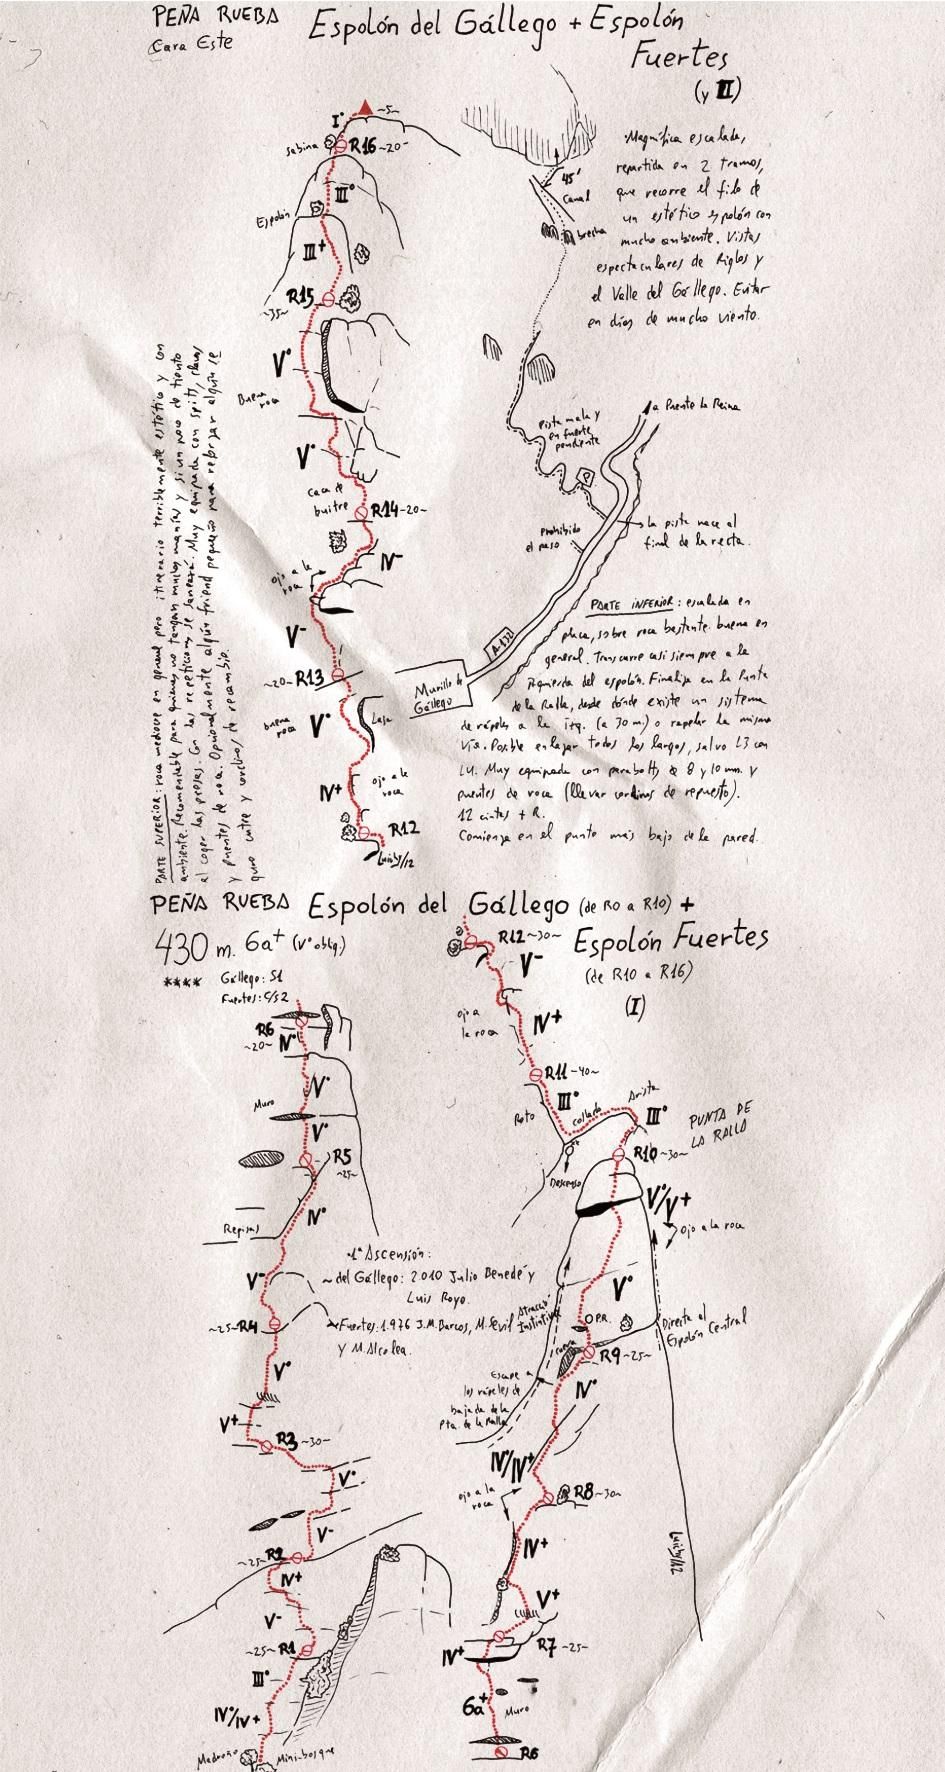 PEÑA RUEBA
Cara Este
Espolón del Gállego + Espolón
Fuertes
(y II)
Magnífica escalada,
repartida en 2 tramos,
que recorre el filo de
un estético espolón con
mucho ambiente. Vistas
espectaculares de Riglos y
el Valle del Gállego. Evitar
en días de mucho viento.
I°
~5~
Sabina
R16 ~20~
III°
Espolón
III+
R15
~35~
V°
Buena
roca
V°
Caca de
buitre
R14 ~20~
IV-
ojo a la
roca
V-
~20~ R13
buena
roca
V°
Laja
IV+
ojo a la
roca
R12
Luichy/12
45'
Canal
brecha
Pista mala y
en fuerte
pendiente
a Puente la Reina
Prohibido
el paso
la pista nace al
final de la recta.
A-132
Murillo de
Gállego
PARTE SUPERIOR: roca mediocre en general pero itinerario terriblemente estético y con
ambiente. Recomendable para quienes no tengan muchas manías y si un poco de tiento
al coger las presas. Con las repeticiones se saneará. Muy equipada con spits, clavos
y puentes de roca. Opcionalmente algún friend pequeño para reforzar algún se
guro entre y cordinos de recambio.
PARTE INFERIOR: escalada en
placa, sobre roca bastante buena en
general. Transcurre casi siempre a la
izquierda del espolón. Finaliza en la Punta
de la Ralla, desde donde existe un sistema
de rápeles a la izq. (a 30 m.) o rapelar la misma
vía. Posible enlazar todos los largos, salvo L3 con
L4. Muy equipada con parabolts de 8 y 10 mm. y
puentes de roca (llevar cordinos de repuesto).
12 cintas + R.
Comienza en el punto más bajo de la pared.
PEÑA RUEBA Espolón del Gállego (de R0 a R10) +
Espolón Fuertes
(de R10 a R16)
(I)
430 m. 6a+ (V° oblig.)
**** Gállego: S1
Fuertes: C/S2
R6
~20~
IV°
V°
Muro
V°
R5
~25~
IV°
Repisas
V-
~25~ R4
V°
V+
R3 ~30~
V°
V-
~25~ R2
IV+
V-
~25~ R1
III°
IV°/IV+
Madroño
Mini-bosque
1ª Ascensión:
~ del Gállego: 2.010 Julio Benedé y
Luis Royo.
~ Fuertes: 1.976 J.M. Barcos, M. Sevil
y M. Alcolea.
R12 ~30~
V-
ojo a
la roca
IV+
R11 ~40~
Roto
III°
Collado
Arista
III°
PUNTA DE
LA RALLA
R10 ~30~
Descenso
V°/V+
ojo a la roca
V°
Atracao
Instintivo
P.R.
Directa al
Espolón Central
cueva
R9 ~25~
Escape a
los rápeles de
bajada de la
Pta. de la Ralla
IV°
IV°/IV+
ojo a la
roca
R8 ~30~
IV+
V+
R7 ~25~
IV+
6a+
Muro
R6
Luichy/12